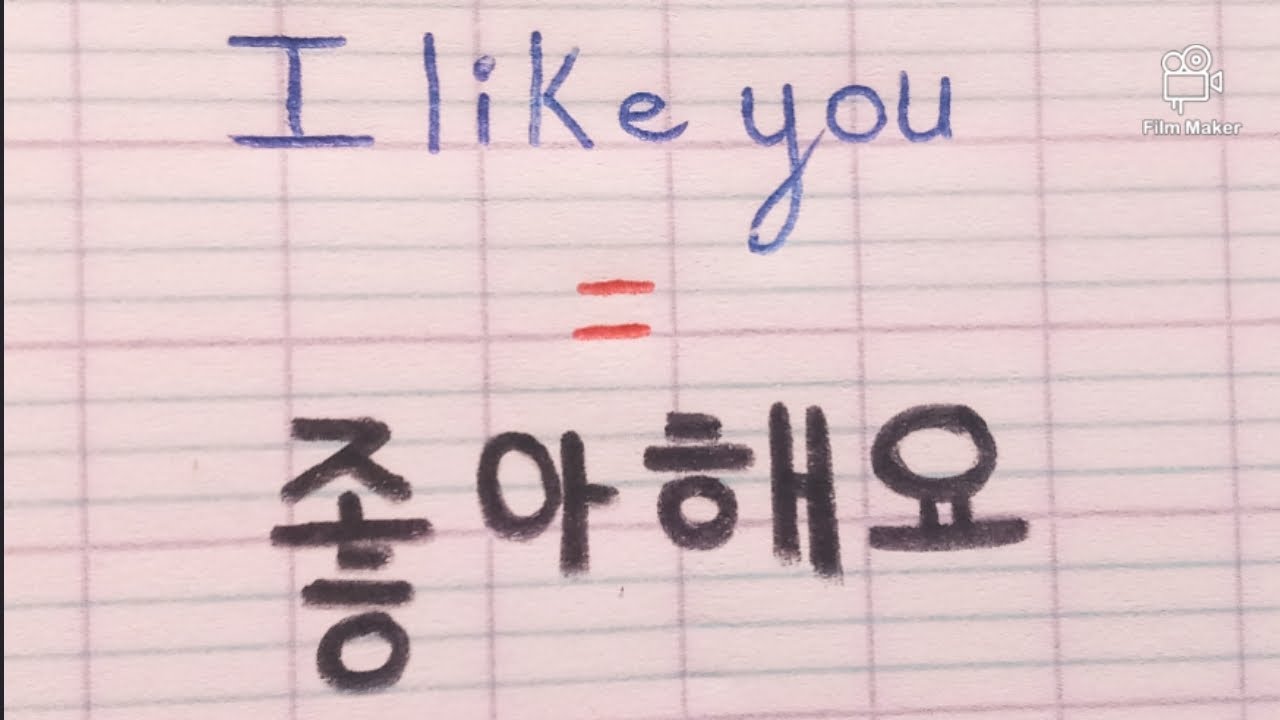 I like you
Film Maker
=
좋아해요